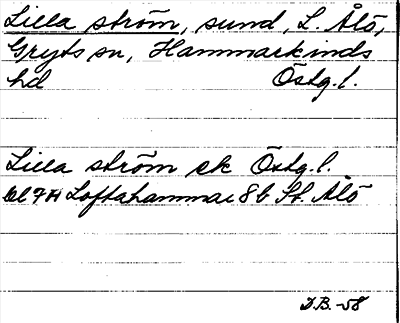 Lilla ström, sund, L. Ålö,
Gryts sn, Hammarkinds
hd Östg. l.
Lilla ström ek Östg. l.
bl 7H Loftahammar 8b St. Ålö
D.B.-58